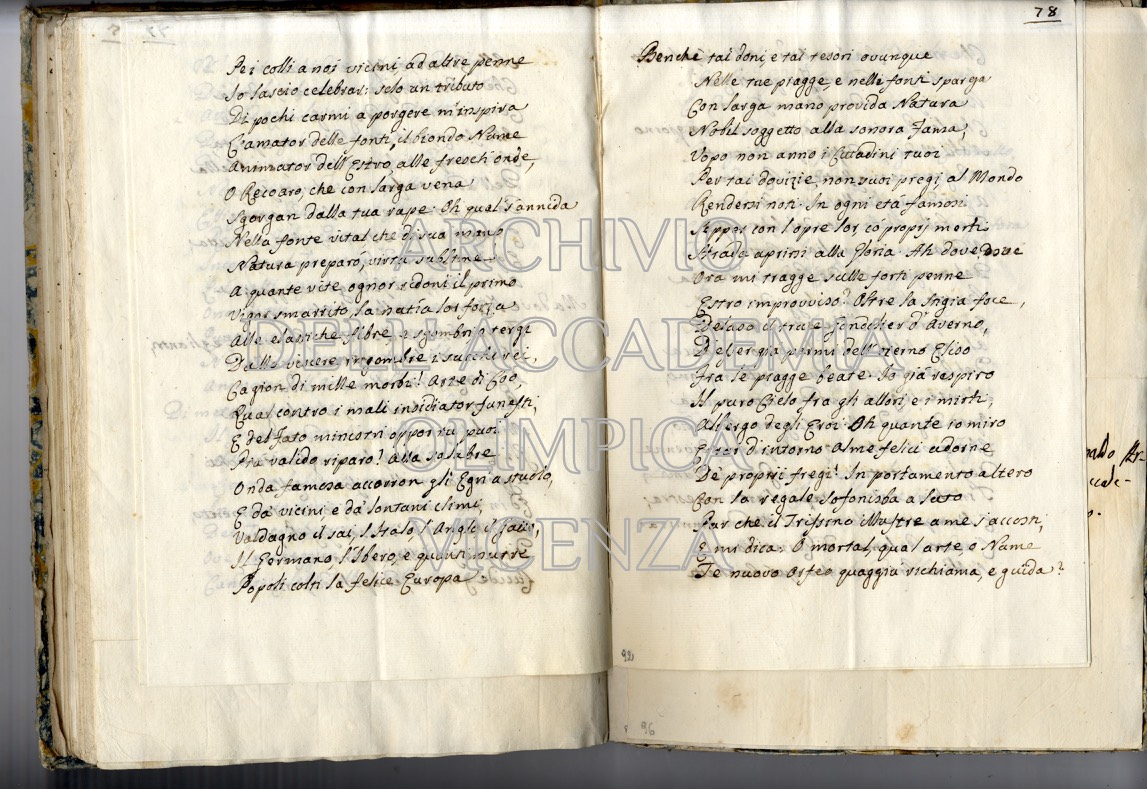 77
Pei colli a noi vicini ad altre penne
Io lascio celebrar: solo un tributo
Di pochi carmi a porgere m'inspira
L'amator delle fonti, il biondo Nume
Animator dell'Estro, alle fresch'onde,
O Recoaro, che con larga vena
Sgorgan dalla tua rupe. Oh qual s'annida
Nella fonte vital che di sua mano
Natura preparò, virtù sublime!
A quante vite ognor ridoni il primo
Vigor smarrito, la natìa lor forza
Alle elastiche fibre, e sgombri, e tergi
Dalle viscere ingombre i succhi rei,
Cagion di mille morbi! Arte di Coo,
Qual contro i mali insidiator funesti,
E del Fato ministri oppor tu puoi
Più valido riparo! Alla salubre
Onda famosa accorron gli Egri a stuolo,
E da' vicini e da' lontani climi,
Valdagno il sai, l'Italo, l'Anglo, il Gallo,
Il Germano, l'Ibero, e quanti nutre
Popoli colti la felice Europa
78
Benchè tai doni, e tai tesori ovunque
Nelle tue piagge, e nelle fonti sparga
Con larga mano provida Natura
Nobil soggetto alla sonora Fama,
Uopo non anno i Cittadini tuoi
Per tai dovizie, non suoi pregi, al Mondo
Rendersi noti. In ogni età famosi
Sepper con l'opre lor, co' proprj merti
Strada aprirsi alla Gloria. Ah dove, dove
Ora mi tragge sulle forti penne
Estro improvviso? Oltre la Stigia foce,
Deluso il
D'Averno,
dell'eterno Eliso
Fra le piagge beate. Io già respiro
Il puro Cielo fra gli allori, e i mirti,
Albergo degli Eroi. Oh quante io miro
Errar d'intorno Alme felici adorne
De' proprj fregi! In portamento altero
Con la regale Sofonisba a lato
Par che il Trissino illustre a me s'accosti,
E mi dica: O mortal, qual arte, o Nume
Te nuovo Orfeo quaggiù richiama, e guida?
92
96
ARCHIVIO
DELLE ACCADEMIA
OLIMPICA
VICENZA